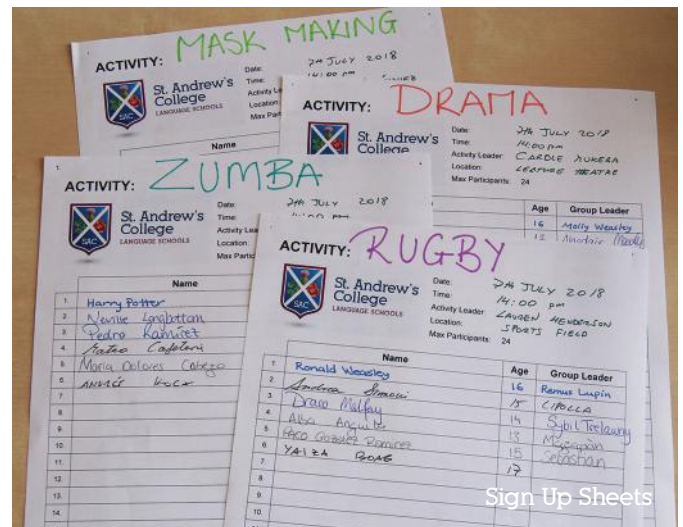 ACTIVITY: MASK MAKING
St. Andrew's
College
LANGUAGE SCHOOLS
SAC
Date: 7th JULY 2018
Time: 14:00 pm
Activity
Location:
Max
Name
ACTIVITY: DRAMA
St. Andrew's
College
Date: 7th JULY 2018
Time: 14:00 pm
Activity Leader: CAROLE
Location: LECTURE THEATRE
Max Participants: 24
Age Group Leader
16 Molly Weasley
13
ACTIVITY: ZUMBA
St. Andrew's
College
LANGUAGE SCHOOLS
SAC
Date: 7th JULY 2018
Time:
Activity
Location:
Max
Name
1. Harry Potter
2. Neville Longbottom
3. Pedro Ramirez
4. Mateo
5. Maria Dolores
6. ANDRÉS
7.
8.
9.
10.
11.
12.
13.
14.
ACTIVITY: RUGBY
St. Andrew's
College
LANGUAGE SCHOOLS
SAC
Date: 7th JULY 2018
Time: 14:00 pm
Activity Leader: LAUREN HENDERSON
Location: SPORTS FIELD
Max Participants: 24
Name Age Group Leader
1. Ronald Weasley 16 Remus Lupin
2. Andrea Simoni 15 CIPOLLA
3. Draco Malfoy 14 Sybil Trelawny
4. Alba 13
5. Paco Ramirez 15 Sebastian
6. YAIZA 17
7.
8.
9.
10.
Sign Up Sheets